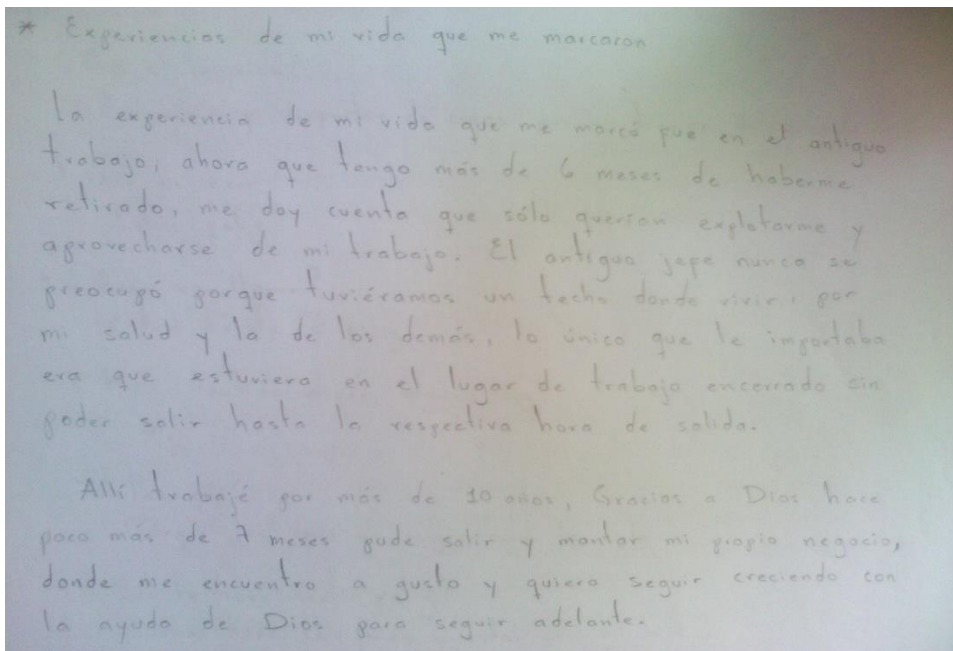 * Experiencias de mi vida que me marcaron
La experiencia de mi vida que me marcó fue en el antiguo
trabajo, ahora que tengo más de 6 meses de haberme
retirado, me doy cuenta que sólo querían explotarme y
aprovecharse de mi trabajo. El antiguo jefe nunca se
preocupó porque tuviéramos un techo donde vivir, por
mi salud y la de los demás, lo único que le importaba
era que estuviera en el lugar de trabajo encerrado sin
poder salir hasta la respectiva hora de salida.
Allí trabajé por más de 10 años, Gracias a Dios hace
poco más de 7 meses pude salir y montar mi propio negocio,
donde me encuentro a gusto y quiero seguir creciendo con
la ayuda de Dios para seguir adelante.